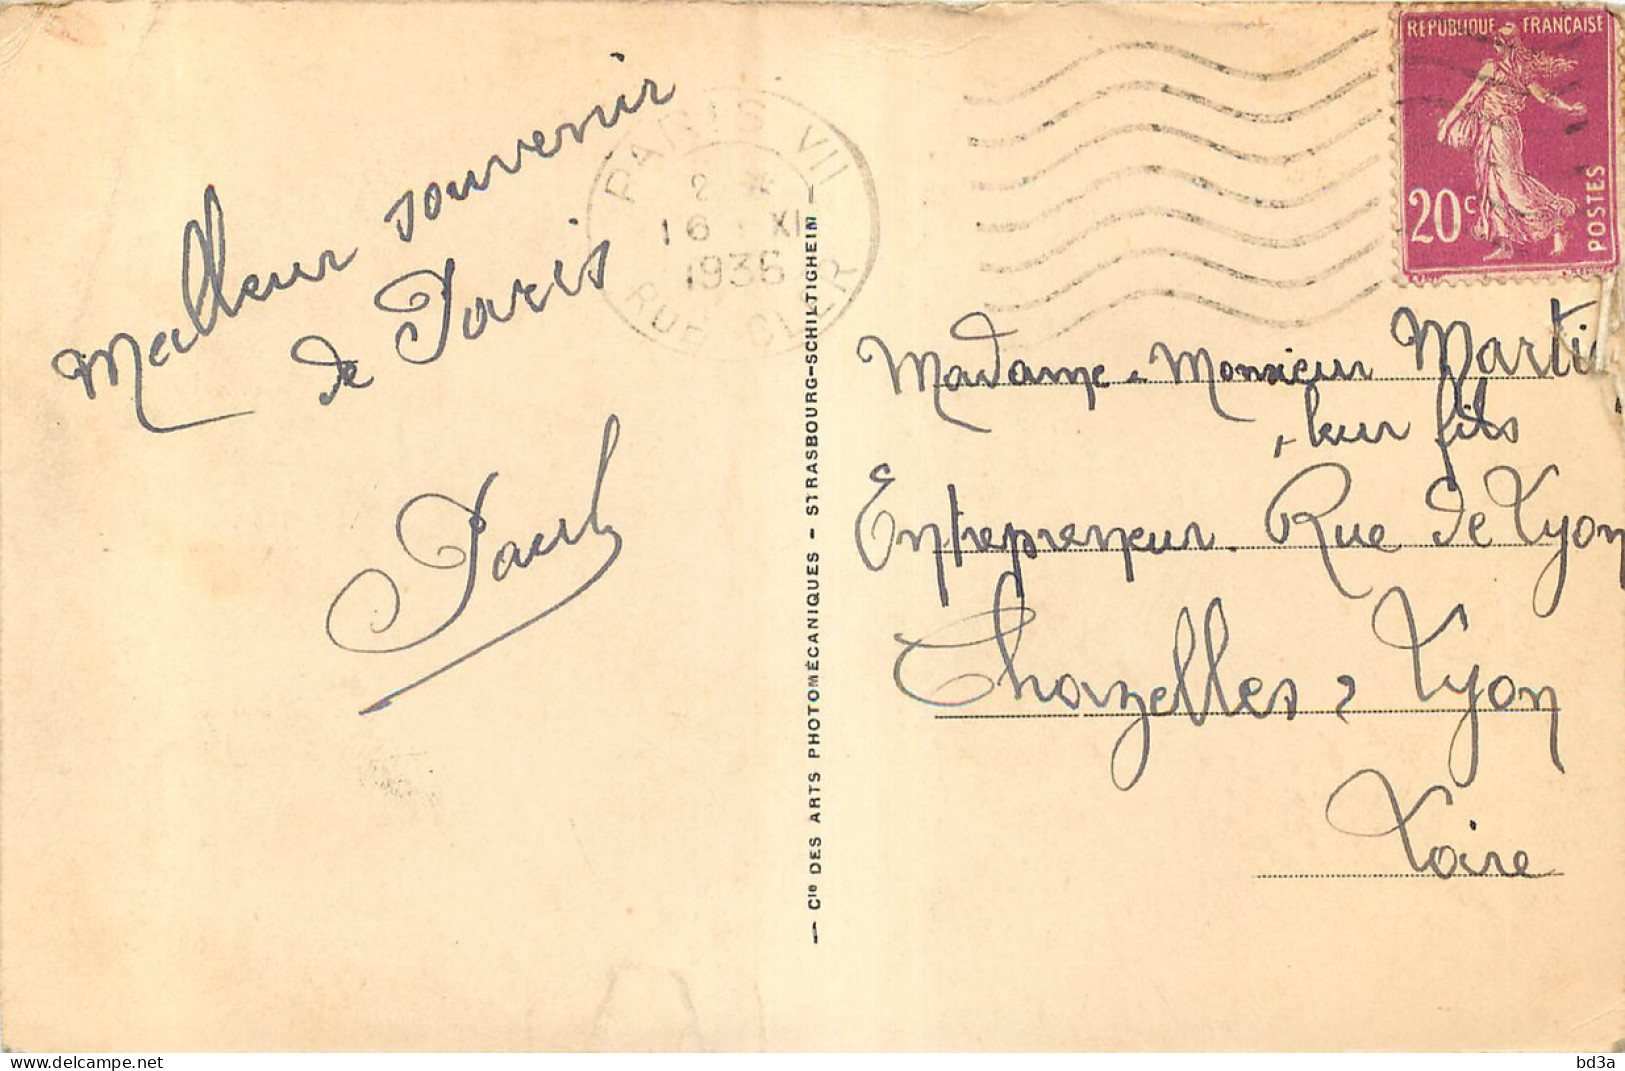 Meilleur souvenir
de Paris
Paul
PARIS VII
2 *
16 XI
1936
RUE CLER
— Cie DES ARTS PHOTOMÉCANIQUES - STRASBOURG-SCHILTIGHEIM —
REPUBLIQUE FRANÇAISE
20c
POSTES
Madame, Monsieur Marti
, leur fils
Entrepreneur. Rue de Lyon
Chazelles s Lyon
Loire
Delcampe.net
bd3a